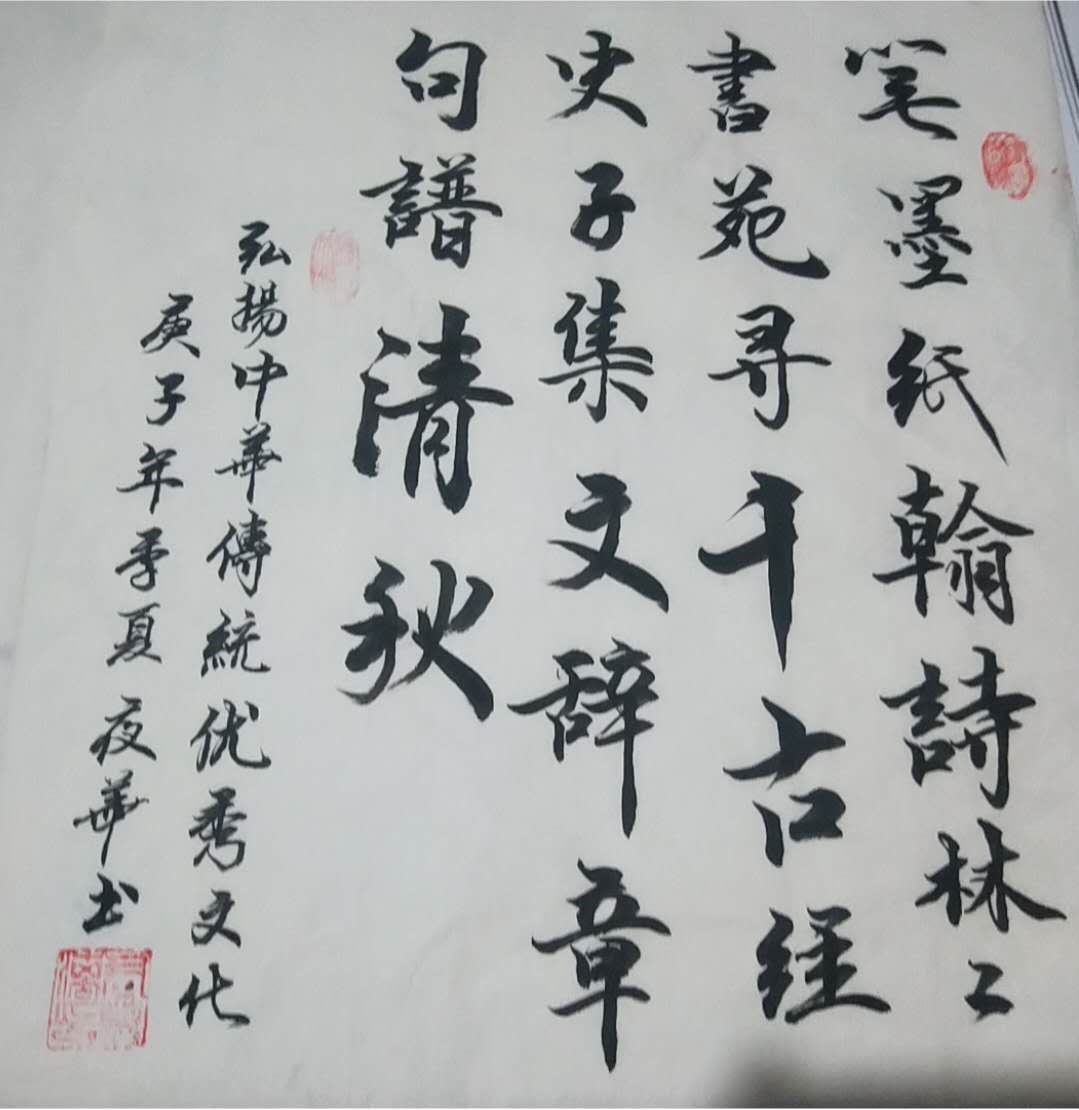 笔墨紙翰詩林〻
書苑寻千古经
史子集文辞章
句譜清秋
弘揚中華傳統优秀文化
庚子年季夏夜華书